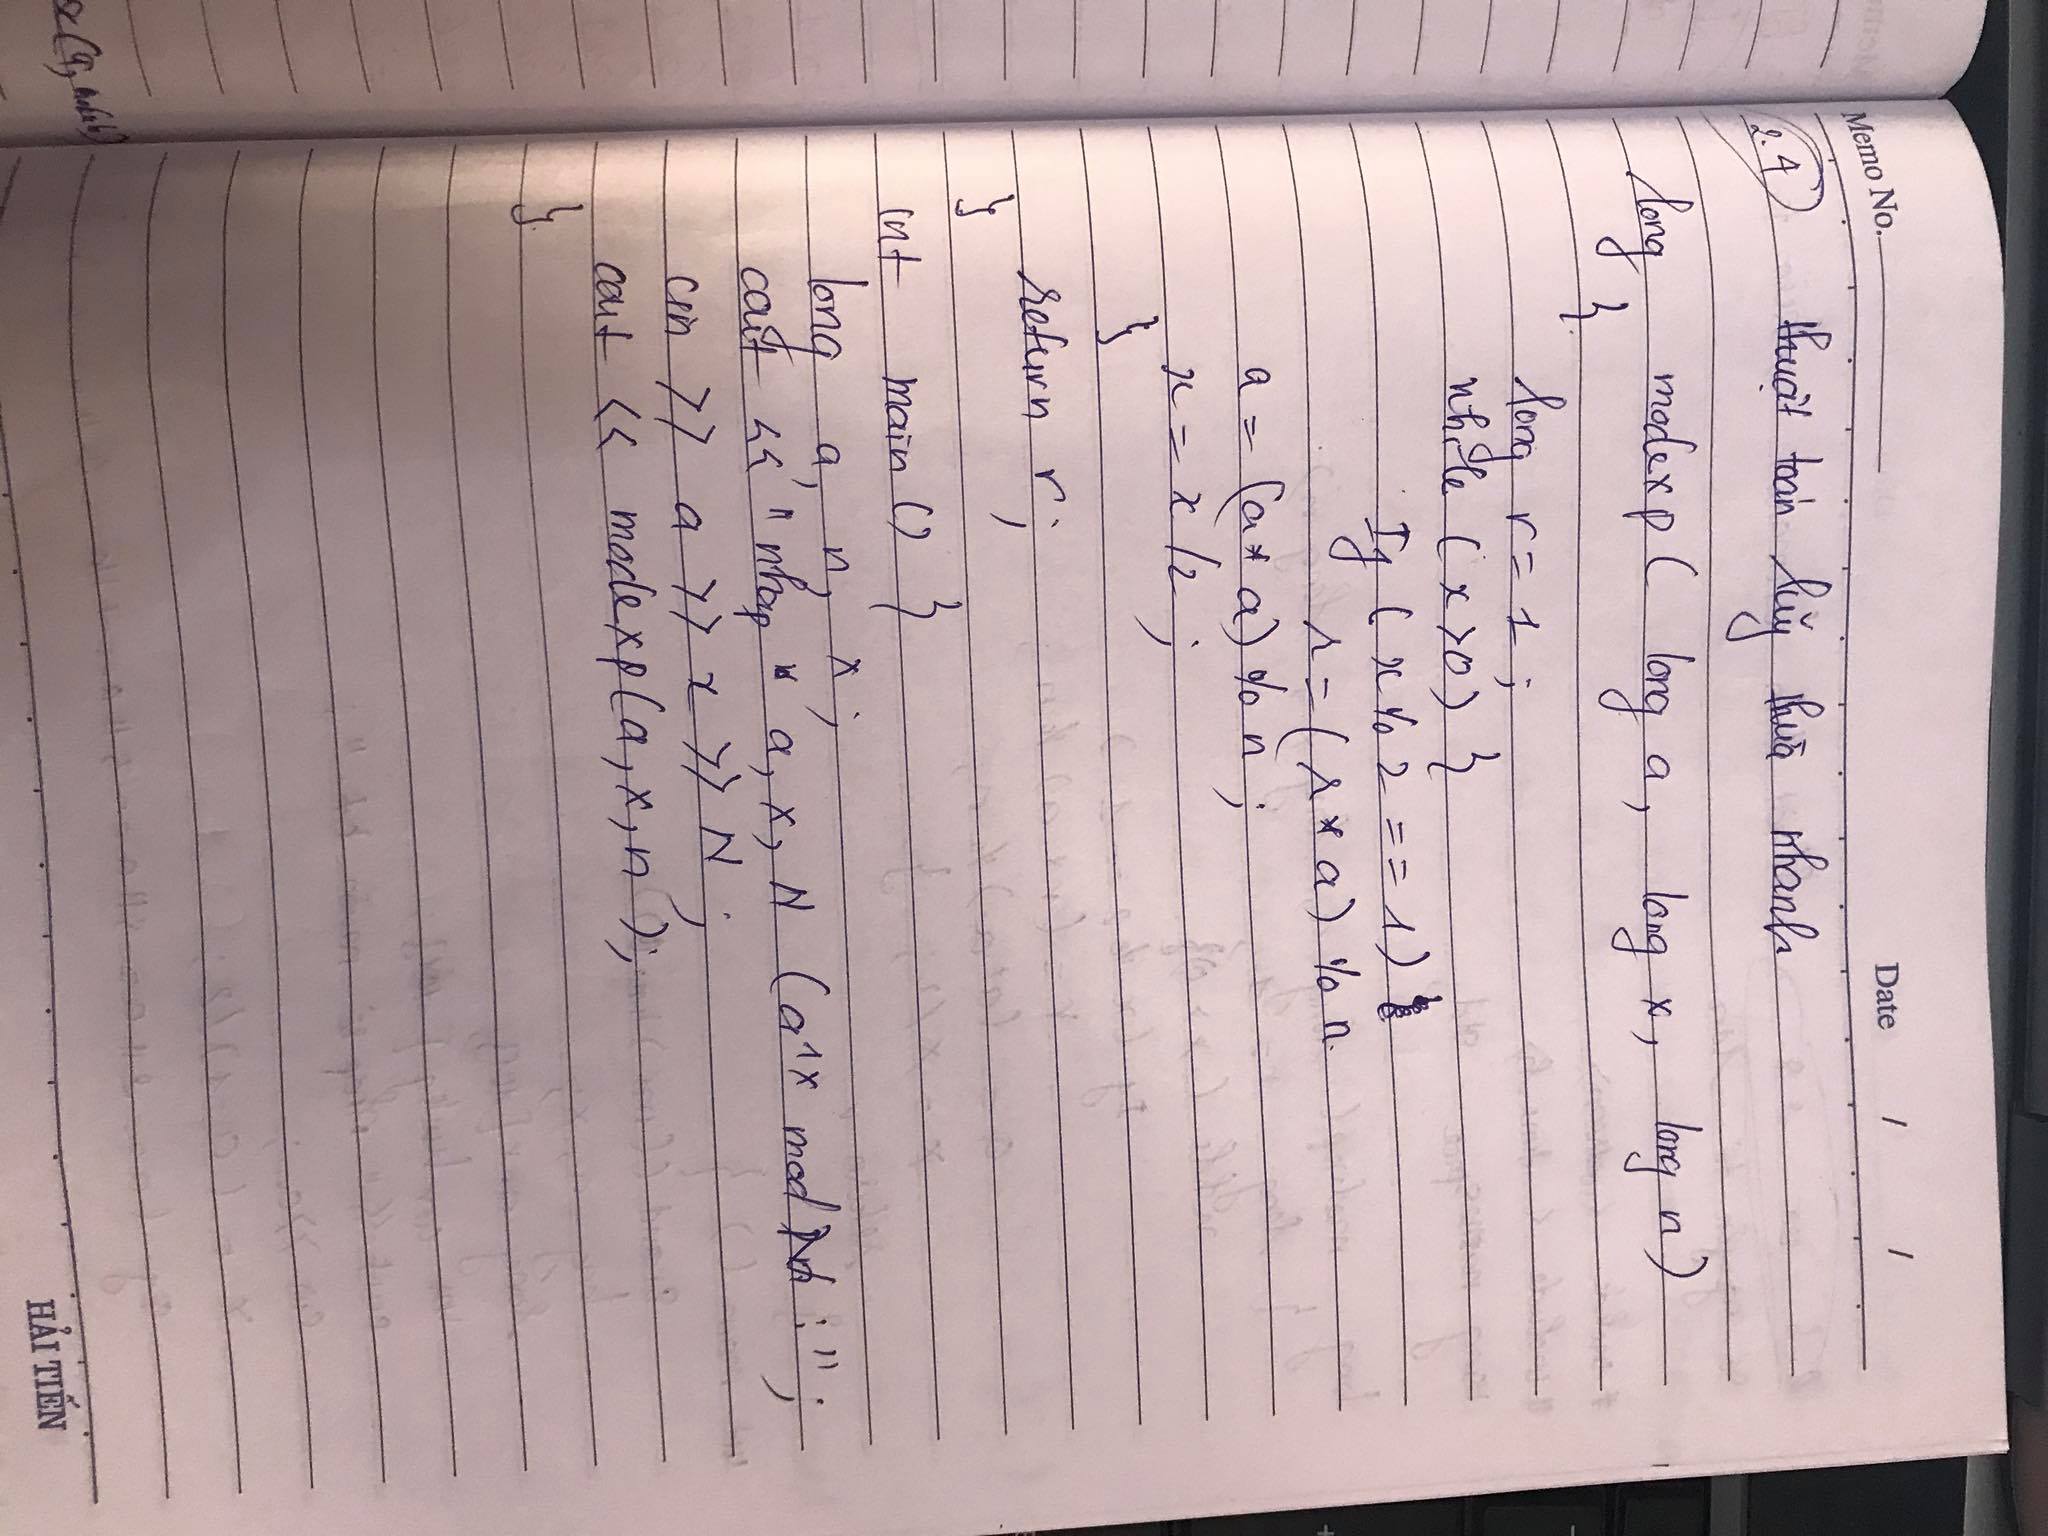 Memo No. Date / /
2.4 thuật toán luỹ thừa nhanh
long modexp( long a, long x, long n)
{
long r = 1;
while (x>0) {
If (x%2 == 1)
r = (r * a) % n
a = (a * a) % n;
x = x/2;
}
return r;
}
int main () {
long a, n, x;
cout << "nhap a, x, N (a^x mod N) : ";
cin >> a >> x >> N;
cout << modexp(a, x, n);
}
HẢI TIẾN